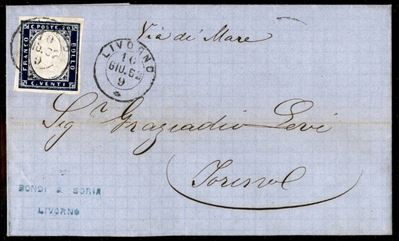 C. POSTE 20
FRANCO
BOLLO
C. VENTI
LIVORNO
GIU. 62
9
Via di Mare
Sig.r Graziadio Levi
BONDI & SORIA
LIVORNO